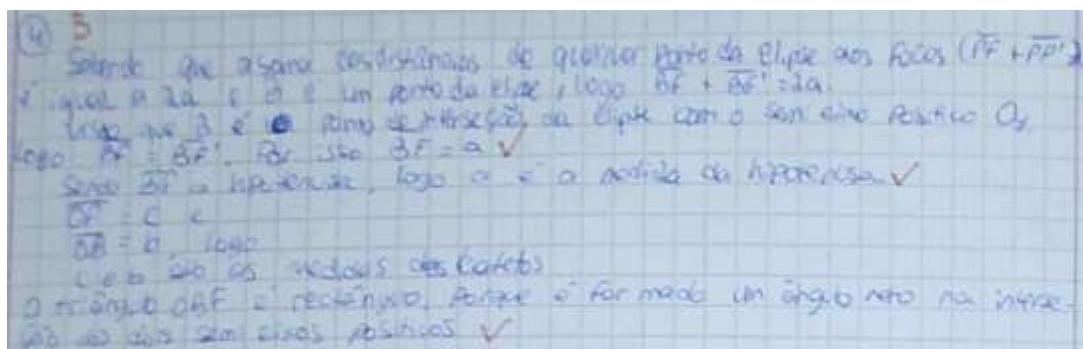 4) 3
Sabendo que a soma das distâncias de qualquer ponto da elipse aos focos (PF + PF')
é igual a 2a e B é um ponto da elipse, logo BF + BF' = 2a.
que B é o ponto de interseção da elipse com o semi eixo positivo Oy,
logo BF = BF'. Por isso BF = a ✓
Sendo BF a hipotenusa, logo a é a medida da hipotenusa ✓
OF = c e
OB = b, logo
c e b são as medidas dos catetos
O triângulo OBF é rectângulo, porque é formado um ângulo reto na interse-
ção dos dois semi eixos positivos ✓